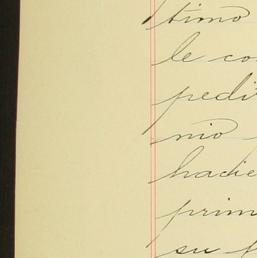 timo
le co
pedi
nio
hacie
prim
su f